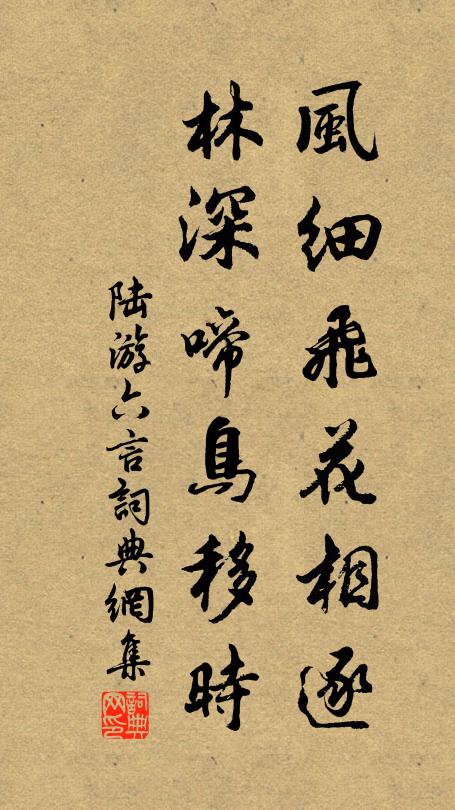 風細飛花相逐
林深啼鳥移時
陆游六言詞典網集
詞典網印